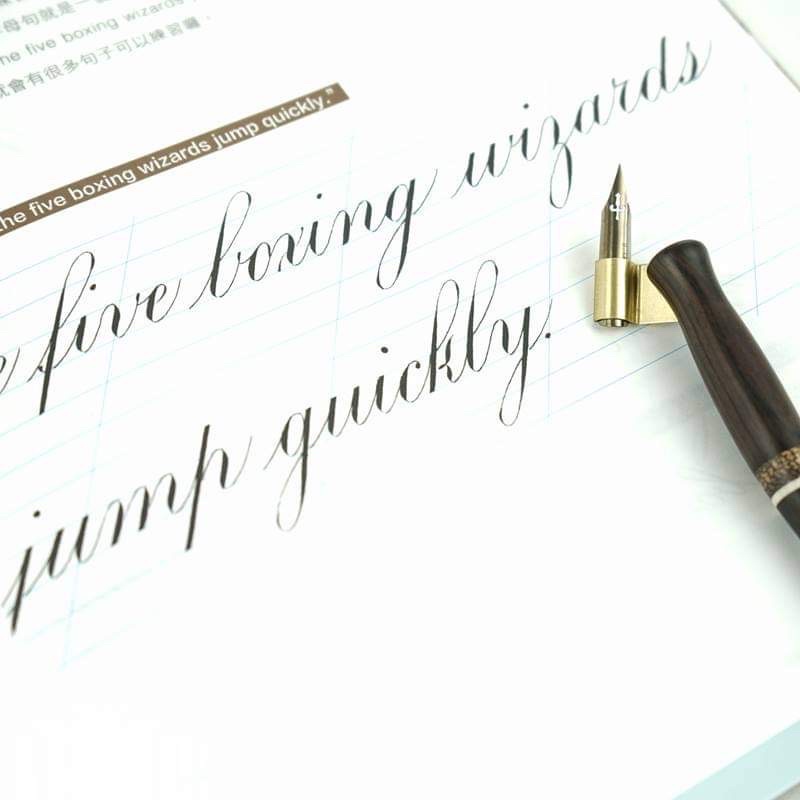 母句就是一
he five boxing wizards
就會有很多句子可以練習囉。
the five boxing wizards jump quickly.”
e five boxing wizards
jump quickly.